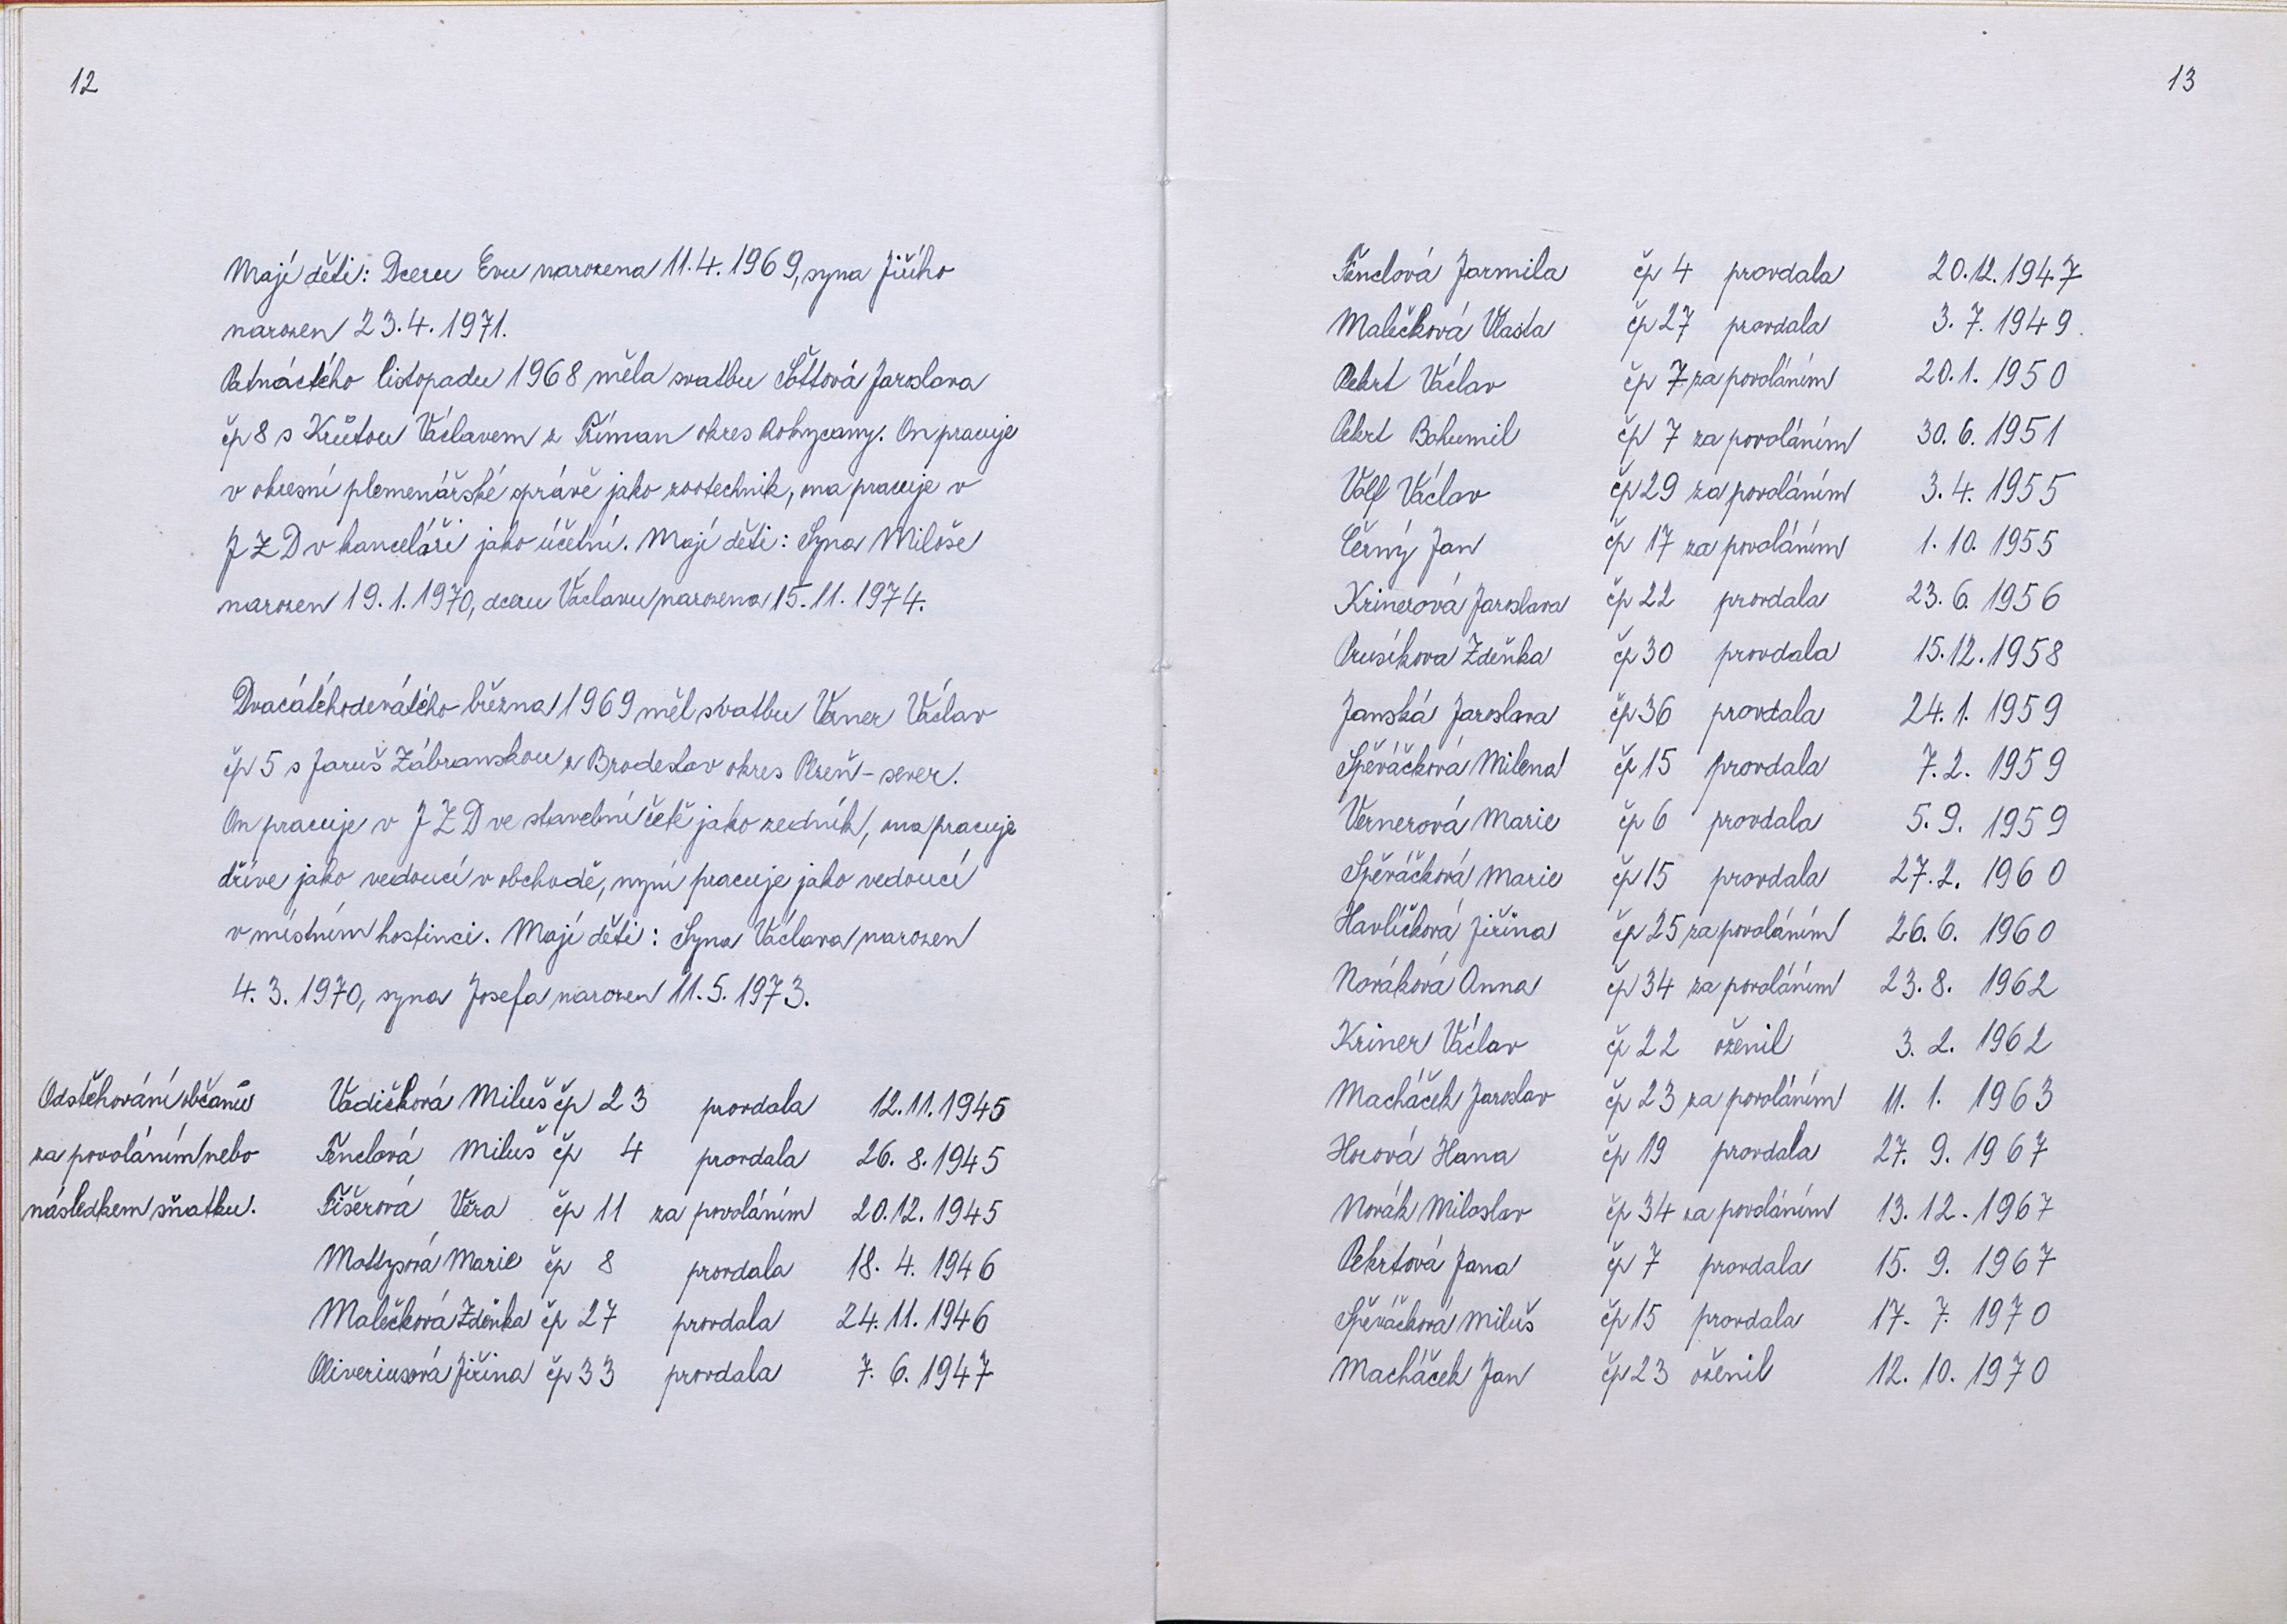 12
Mají děti: Dceru Evu narozena 11.4.1969, syna Jiřího
narozen 23.4.1971.
Patnáctého listopadu 1968 měla svatbu Šottová Jaroslava
čp 8 s Krůtou Václavem z Těman okres Rokycany. On pracuje
v okresní plemenářské správě jako zootechnik, ona pracuje v
J Z D v kanceláři jako účetní. Mají děti: Syna Miloše
narozen 19.1.1970, dceru Václavu narozena 15.11.1974.
Dvacátéhodevátého března 1969 měl svatbu Verner Václav
čp 5 s Jaruš Zábranskou z Brodeslav okres Plzeň-sever.
On pracuje v J Z D ve stavební četě jako zedník, ona pracuje
dříve jako vedoucí v obchodě, nyní pracuje jako vedoucí
v místním hostinci. Mají děti: Syna Václava narozen
4.3.1970, syna Josefa narozen 11.5.1973.
Odstěhování občanů
za povoláním nebo
následkem sňatku.
Vodičková Miluš čp 23 provdala 12.11.1945
Fenclová Miluš čp 4 provdala 26.8.1945
Fišerová Věra čp 11 za povoláním 20.12.1945
Mottysová Marie čp 8 provdala 18.4.1946
Malečková Zdeňka čp 27 provdala 24.11.1946
Oliveriusová Jiřina čp 33 provdala 7.6.1947
13
Fenclová Jarmila čp 4 provdala 20.12.1947
Malečková Vlasta čp 27 provdala 3.7.1949.
Pekrt Václav čp 7 za povoláním 20.1.1950
Pekrt Bohumil čp 7 za povoláním 30.6.1951
Volf Václav čp 29 za povoláním 3.4.1955
Černý Jan čp 17 za povoláním 1.10.1955
Krinerová Jaroslava čp 22 provdala 23.6.1956
Prusíkova Zdeňka čp 30 provdala 15.12.1958
Janská Jaroslava čp 36 provdala 24.1.1959
Spěváčková Milena čp 15 provdala 7.2.1959
Vernerová Marie čp 6 provdala 5.9.1959
Spěváčková Marie čp 15 provdala 27.2.1960
Havlíčková Jiřina čp 25 za povoláním 26.6.1960
Nováková Anna čp 34 za povoláním 23.8.1962
Kriner Václav čp 22 oženil 3.2.1962
Macháček Jaroslav čp 23 za povoláním 11.1.1963
Horová Hana čp 19 provdala 27.9.1967
Novák Miloslav čp 34 za povoláním 13.12.1967
Pekrtová Jana čp 7 provdala 15.9.1967
Spěváčková Miluš čp 15 provdala 17.7.1970
Macháček Jan čp 23 oženil 12.10.1970